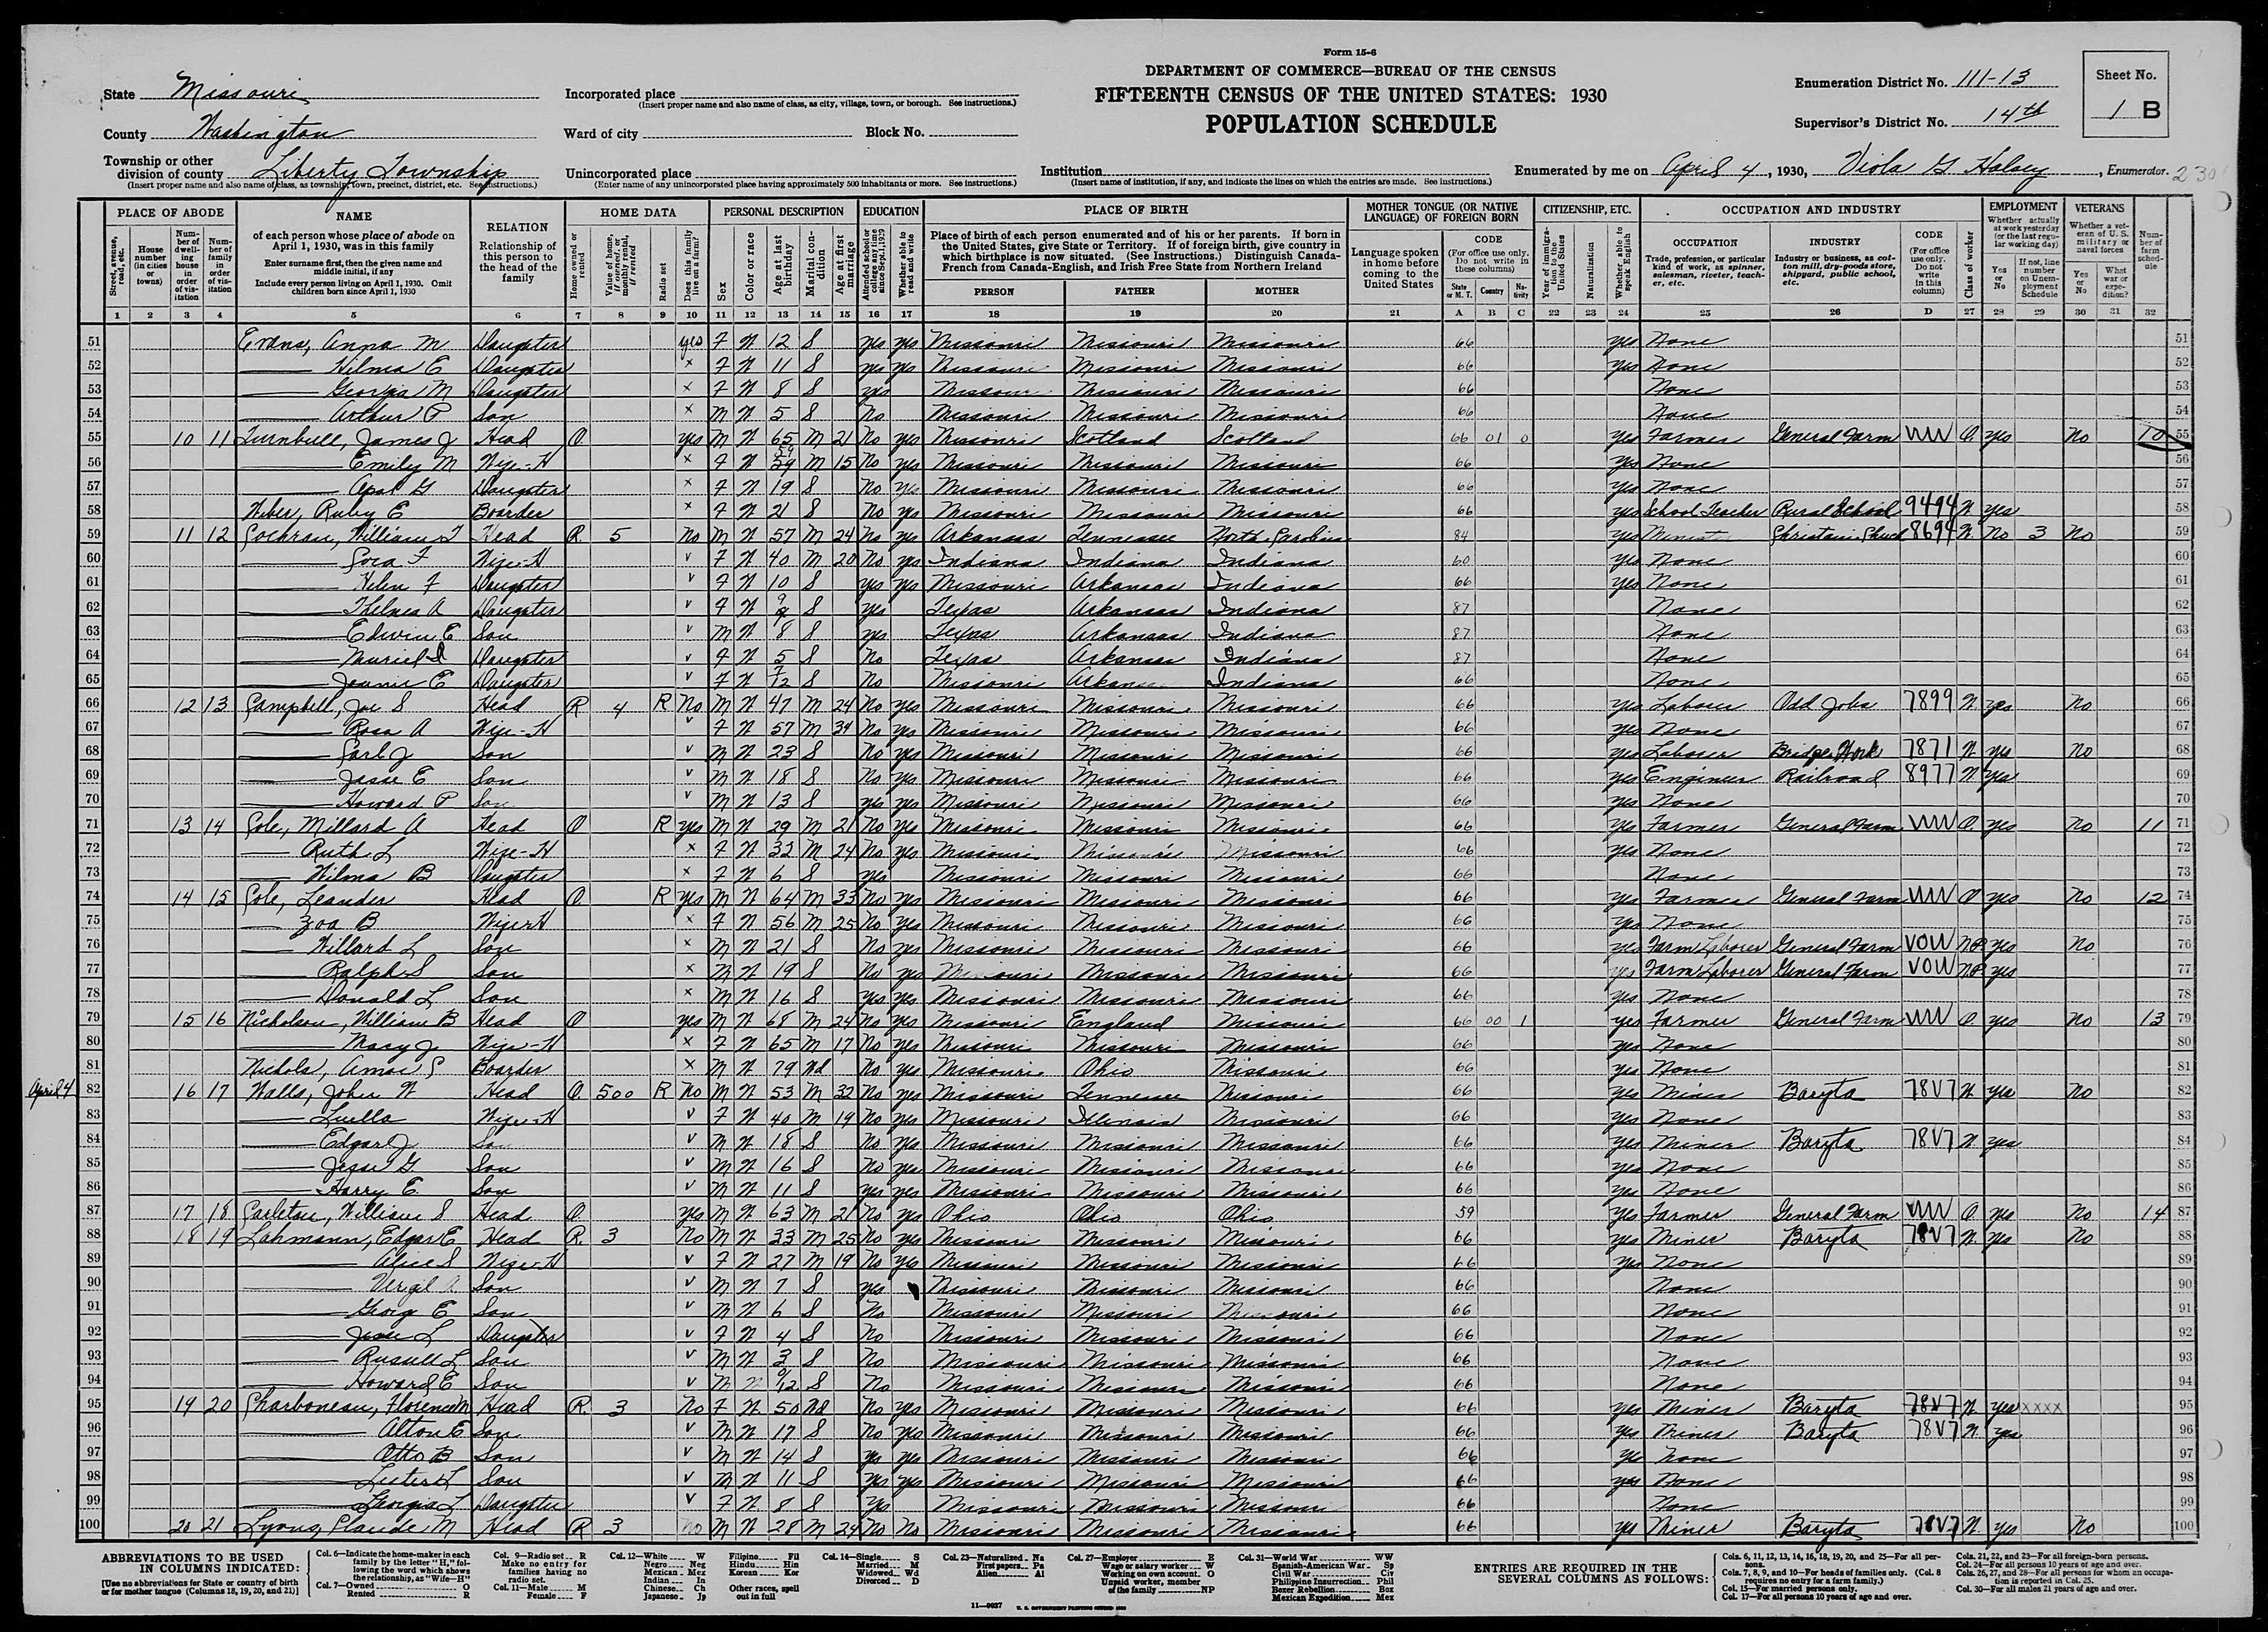 Form 15-6
DEPARTMENT OF COMMERCE—BUREAU OF THE CENSUS
FIFTEENTH CENSUS OF THE UNITED STATES: 1930
POPULATION SCHEDULE
State Missouri
County Washington
Township or other division of county Liberty Township
(Insert proper name and also name of class, as township, town, precinct, district, etc. See instructions.)
Incorporated place
(Insert proper name and also name of class, as city, village, town, or borough. See instructions.)
Ward of city Block No.
Unincorporated place
(Enter name of any unincorporated place having approximately 500 inhabitants or more. See instructions.)
Institution
(Insert name of institution, if any, and indicate the lines on which the entries are made. See instructions.)
Enumeration District No. 111-13
Supervisor's District No. 14th
Sheet No. 1 B
Enumerated by me on April 4, 1930, Viola G Halsey, Enumerator. 230
PLACE OF ABODE NAME RELATION HOME DATA PERSONAL DESCRIPTION EDUCATION PLACE OF BIRTH MOTHER TONGUE (OR NATIVE LANGUAGE) OF FOREIGN BORN CITIZENSHIP, ETC. OCCUPATION AND INDUSTRY EMPLOYMENT VETERANS
1 2 3 4 5 6 7 8 9 10 11 12 13 14 15 16 17 18 19 20 21 A B C 22 23 24 25 26 D 27 28 29 30 31 32
51 Evans, Anna M Daughter yes F W 12 S yes yes Missouri Missouri Missouri 66 yes None 51
52 Wilma E Daughter x F W 11 S yes yes Missouri Missouri Missouri 66 yes None 52
53 Georgia M Daughter x F W 8 S yes Missouri Missouri Missouri 66 None 53
54 Arthur P Son x M W 5 S No Missouri Missouri Missouri 66 None 54
55 10 11 Turnbull, James J Head O yes M W 65 M 21 No yes Missouri Scotland Scotland 66 01 0 yes Farmer General Farm VVVV O yes No 10 55
56 Emily M Wife-H x F W 59 M 15 No yes Missouri Missouri Missouri 66 yes None 56
57 Opal G Daughter x F W 19 S No yes Missouri Missouri Missouri 66 yes None 57
58 Ruby E Boarder x F W 21 S No yes Missouri Missouri Missouri 66 yes School Teacher Rural School 9494 W yes 58
59 11 12 Cochran, William T Head R 5 No M W 57 M 24 No yes Arkansas Tennessee North Carolina 84 yes 8694 W No 3 No 59
60 Cora F Wife-H v F W 40 M 20 No yes Indiana Indiana Indiana 60 yes None 60
61 Helen F Daughter v F W 10 S yes yes Missouri Arkansas Indiana 66 yes None 61
62 Thelma A Daughter v F W 9 S yes Texas Arkansas Indiana 87 None 62
63 Edwin E Son v M W 8 S yes Texas Arkansas Indiana 87 None 63
64 Muriel I Daughter v F W 5 S No Texas Arkansas Indiana 87 None 64
65 Jeanie E Daughter v F W 7/12 S No Missouri Arkansas Indiana 66 None 65
66 12 13 Campbell, Joe S Head R 4 R No M W 47 M 24 No yes Missouri Missouri Missouri 66 yes Laborer Odd Jobs 7899 W yes No 66
67 Rosa A Wife-H v F W 57 M 34 No yes Missouri Missouri Missouri 66 yes None 67
68 Carl J Son v M W 23 S No yes Missouri Missouri Missouri 66 yes Laborer Bridge Work 7871 W yes No 68
69 Jesse E Son v M W 18 S No yes Missouri Missouri Missouri 66 yes Engineer Railroad 8977 W yes 69
70 Howard P Son v M W 13 S yes yes Missouri Missouri Missouri 66 yes None 70
71 13 14 Cole, Millard A Head O R yes M W 29 M 21 No yes Missouri Missouri Missouri 66 yes Farmer General Farm VVVV O yes No 11 71
72 Ruth L Wife-H x F W 32 M 24 No yes Missouri Missouri Missouri 66 yes None 72
73 Wilma B Daughter x F W 6 S yes Missouri Missouri Missouri 66 None 73
74 14 15 Cole, Leander Head O R yes M W 64 M 33 No yes Missouri Missouri Missouri 66 yes Farmer General Farm VVVV O yes No 12 74
75 Zoa B Wife-H x F W 56 M 25 No yes Missouri Missouri Missouri 66 yes None 75
76 Willard L Son x M W 21 S No yes Missouri Missouri Missouri 66 yes Farm Laborer General Farm VOVV NP yes No 76
77 Ralph S Son x M W 19 S No yes Missouri Missouri Missouri 66 yes Farm Laborer General Farm VOVV NP yes 77
78 Donald L Son x M W 16 S yes yes Missouri Missouri Missouri 66 yes None 78
79 15 16 Nicholson, William B Head O yes M W 68 M 24 No yes Missouri England Missouri 66 00 1 yes Farmer General Farm VVVV O yes No 13 79
80 Mary J Wife-H x F W 65 M 17 No yes Missouri Missouri Missouri 66 yes None 80
81 Nichols, Amos S Boarder x M W 79 Wd No yes Missouri Ohio Missouri 66 yes None 81
April 4 82 16 17 Walls, John W Head O 500 R No M W 53 M 32 No yes Missouri Tennessee Missouri 66 yes Miner Baryta 78V7 W yes No 82
83 Luella Wife-H v F W 40 M 19 No yes Missouri Illinois Missouri 66 yes None 83
84 Edgar J Son v M W 18 S No yes Missouri Missouri Missouri 66 yes Miner Baryta 78V7 W yes 84
85 Jesse G Son v M W 16 S No yes Missouri Missouri Missouri 66 yes None 85
86 Harry E Son v M W 11 S yes yes Missouri Missouri Missouri 66 yes None 86
87 17 18 Carleton, William S Head O yes M W 63 M 21 No yes Ohio Ohio Ohio 59 yes Farmer General Farm VVVV O yes No 14 87
88 18 19 Lahmann, Edgar E Head R 3 No M W 33 M 25 No yes Missouri Missouri Missouri 66 yes Miner Baryta 78V7 W yes No 88
89 Alice S Wife-H v F W 27 M 19 No yes Missouri Missouri Missouri 66 yes None 89
90 Vergil A Son v M W 7 S yes Missouri Missouri Missouri 66 None 90
91 George E Son v M W 6 S No Missouri Missouri Missouri 66 None 91
92 Jesse L Daughter v F W 4 S No Missouri Missouri Missouri 66 None 92
93 Russell L Son v M W 3 S No Missouri Missouri Missouri 66 None 93
94 Howard E Son v M W 9/12 S No Missouri Missouri Missouri 66 None 94
95 19 20 Charboneau, Florence M Head R 3 No F W 50 Wd No yes Missouri Missouri Missouri 66 yes Miner Baryta 78V7 W yes XXXX 95
96 Alton E Son v M W 17 S No yes Missouri Missouri Missouri 66 yes Miner Baryta 78V7 W yes 96
97 Otto B Son v M W 14 S yes yes Missouri Missouri Missouri 66 yes None 97
98 Lester L Son v M W 11 S yes yes Missouri Missouri Missouri 66 yes None 98
99 Georgia L Daughter v F W 8 S yes Missouri Missouri Missouri 66 None 99
100 20 21 Lyons, Claude M Head R 3 No M W 28 M 24 No No Missouri Missouri Missouri 66 yes Miner Baryta 78V7 W yes No 100
ABBREVIATIONS TO BE USED IN COLUMNS INDICATED:
[Use no abbreviations for State or country of birth or for mother tongue (Columns 18, 19, 20, and 21)]
Col. 6—Indicate the home-maker in each family by the letter "H," following the word which shows the relationship, as "Wife—H"
Col. 7—Owned O Rented R
Col. 9—Radio set R Make no entry for families having no radio set.
Col. 11—Male M Female F
Col. 12—White W Negro Neg Mexican Mex Indian In Chinese Ch Japanese Jp Filipino Fil Hindu Hin Korean Kor Other races, spell out in full
Col. 14—Single S Married M Widowed Wd Divorced D
Col. 23—Naturalized Na First papers Pa Alien Al
Col. 27—Employer E Wage or salary worker W Working on own account O Unpaid worker, member of the family NP
Col. 31—World War WW Spanish-American War Sp Civil War Civ Philippine Insurrection Phil Boxer Rebellion Box Mexican Expedition Mex
ENTRIES ARE REQUIRED IN THE SEVERAL COLUMNS AS FOLLOWS:
Cols. 6, 11, 12, 13, 14, 16, 18, 19, 20, and 25—For all persons.
Cols. 7, 8, 9, and 10—For heads of families only. (Col. 8 requires no entry for a farm family.)
Col. 15—For married persons only.
Col. 17—For all persons 10 years of age and over.
Cols. 21, 22, and 23—For all foreign-born persons.
Col. 24—For all persons 10 years of age and over.
Cols. 26, 27, and 28—For all persons for whom an occupation is reported in Col. 25.
Col. 30—For all males 21 years of age and over.
11—9937 U. S. GOVERNMENT PRINTING OFFICE